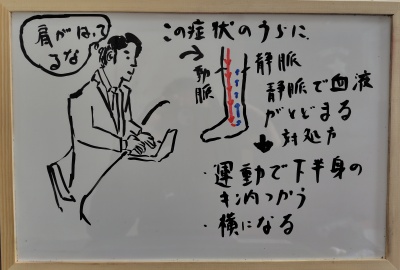 肩がはって
るな
この症状のうらに
動脈
静脈
静脈で血液
がとどまる
対処方
・運動で下半身の
キン肉つかう
・横になる